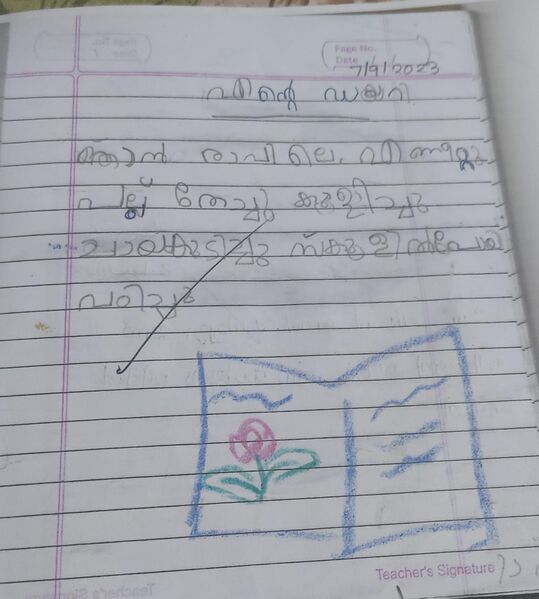 Page No.
Date 7/9/2023
എന്റെ ഡയറി
ഞാൻ രാവിലെ എണീറ്റു
പല്ല് തേച്ചു കുളിച്ചു
ചായകുടിച്ചു സ്കൂളിൽപോയി
പഠിച്ചു
Teacher's Signature